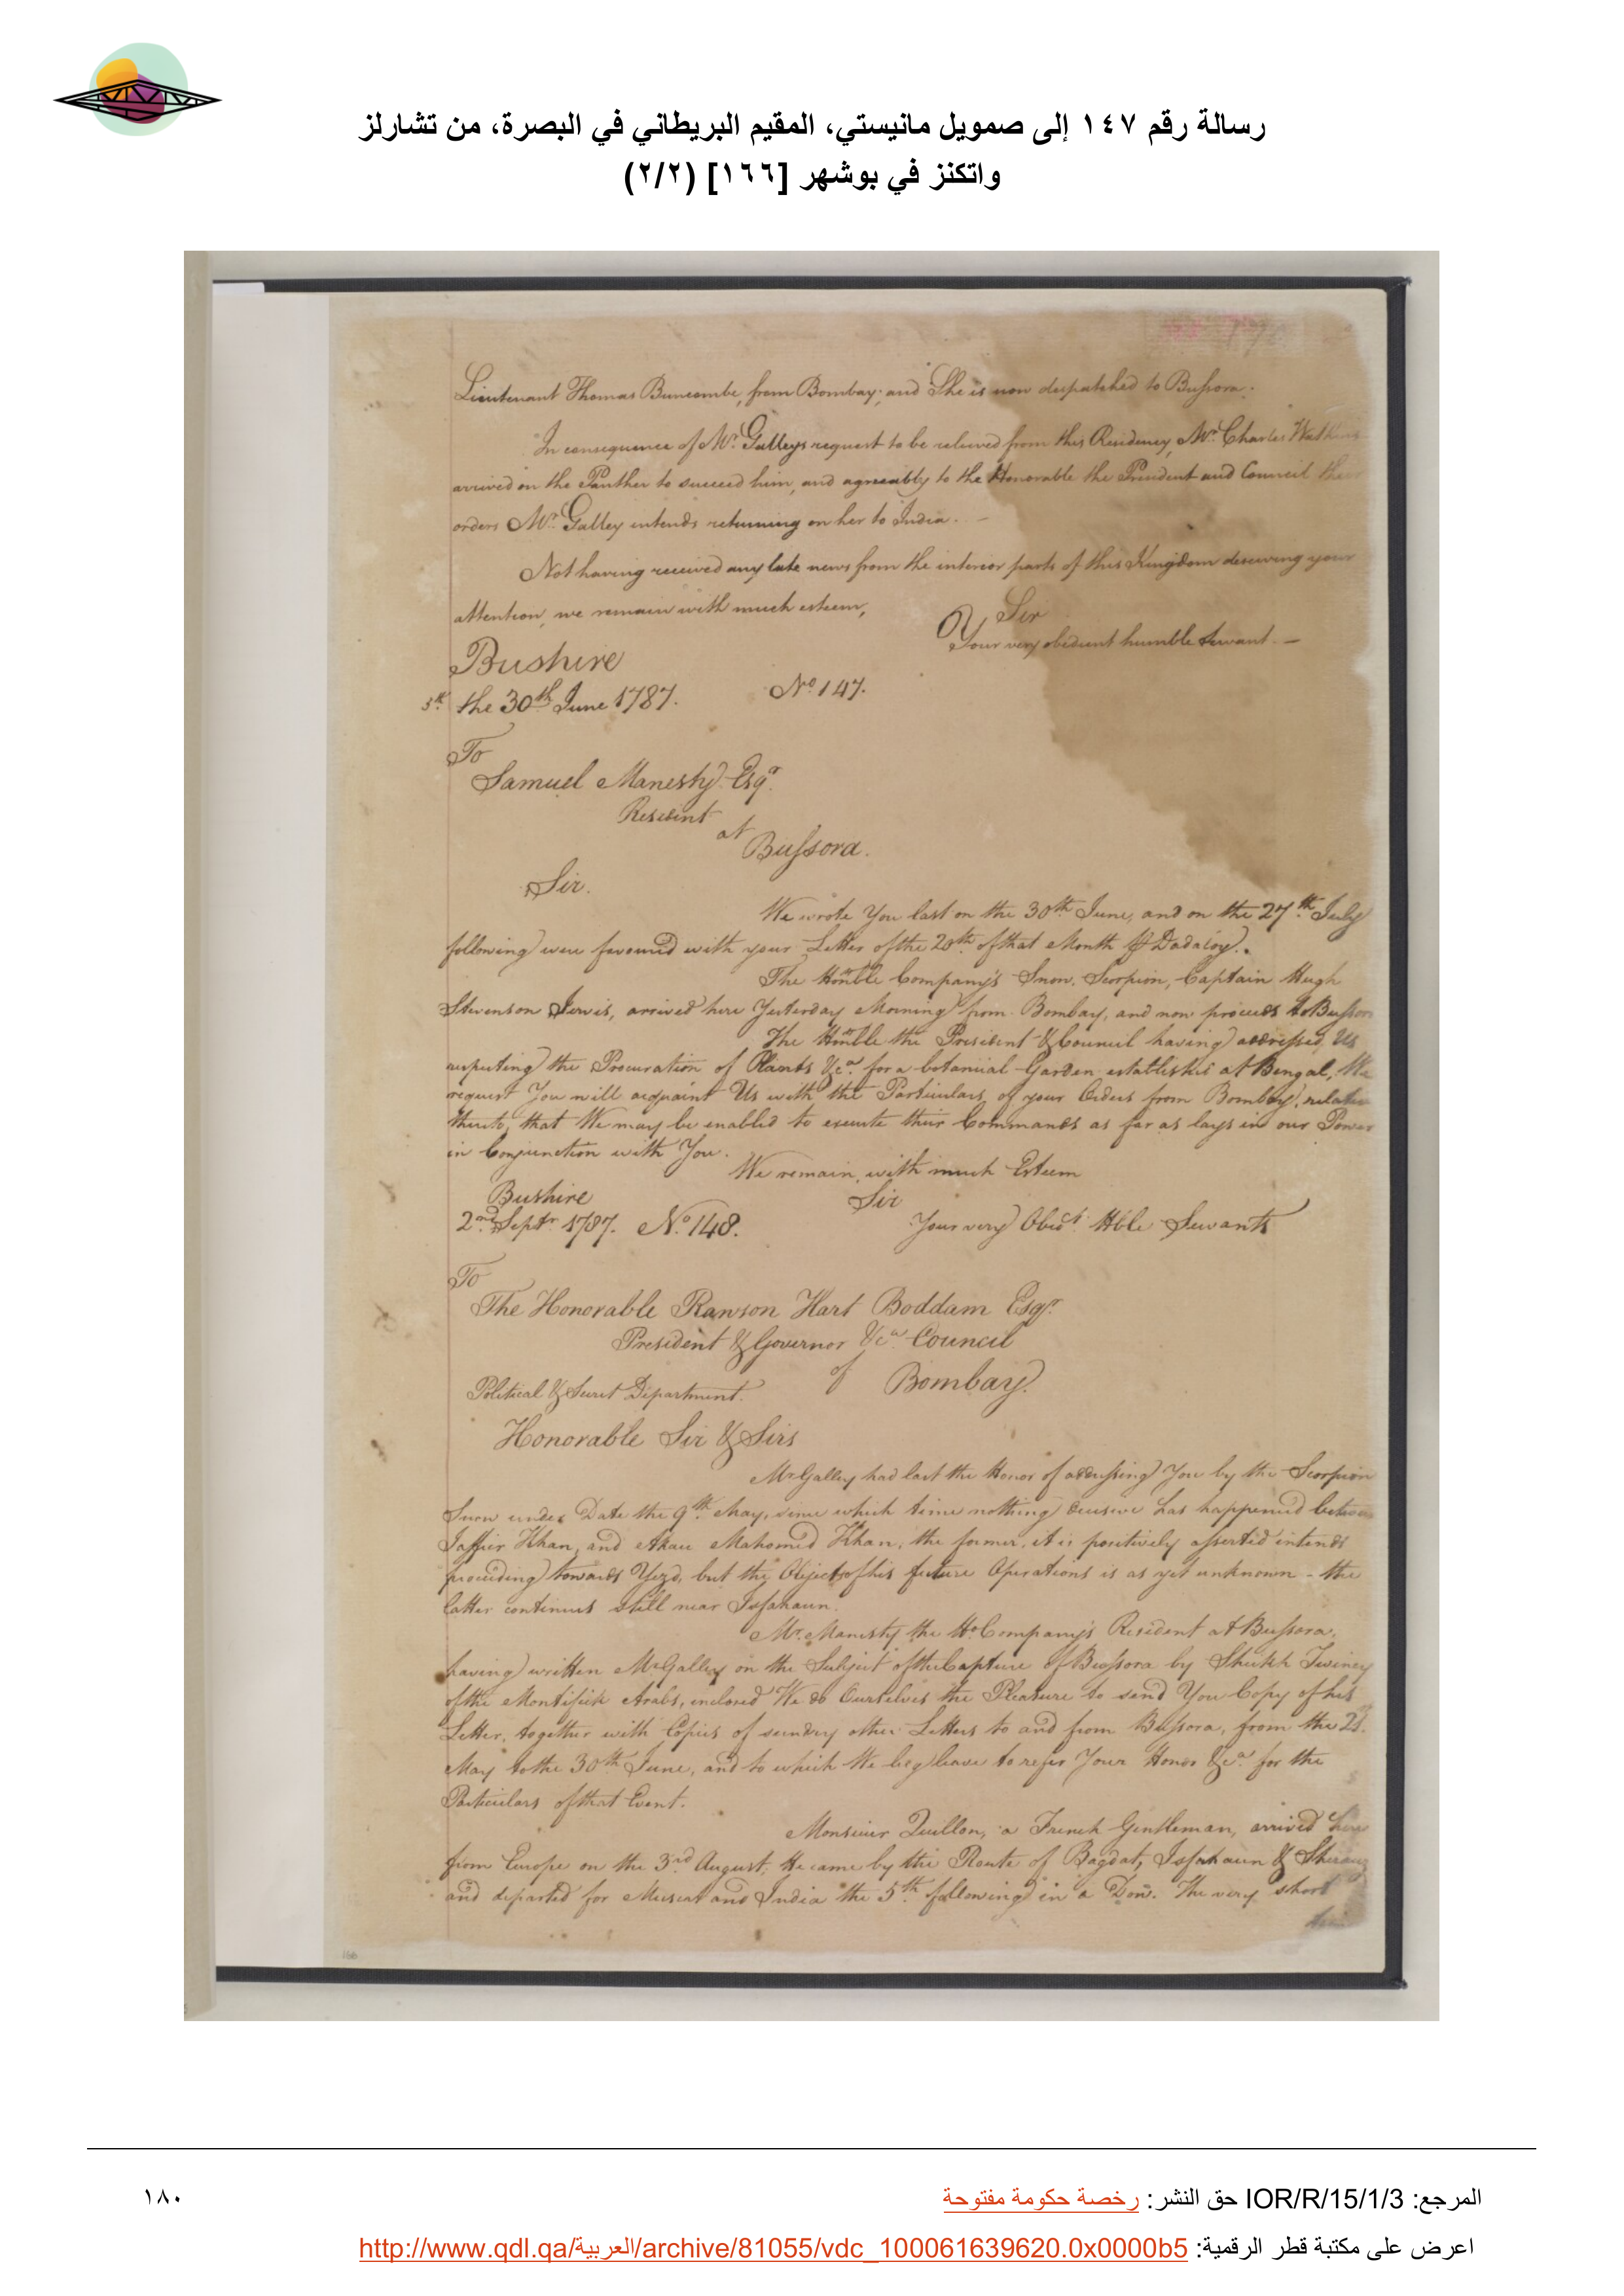 رسالة رقم ١٤٧ إلى صمويل مانيستي، المقيم البريطاني في البصرة، من تشارلز
واتكنز في بوشهر [١٦٦] (٢/٢)
Lieutenant Thomas Buncombe, from Bombay; and She is now despatched to Bussora.
In consequence of Mr. Galleys request to be relieved from this Residency, Mr. Charles Watkins
arrived on the Panther to succeed him, and agreeably to the Honorable the President and Council their
orders Mr. Galley intends returning on her to India.
Not having received any late news from the interior parts of this Kingdom deserving your
attention, we remain with much esteem,
Sir
Your very obedient humble Servant. —
Bushire
the 30th June 1787.
No. 147.
To
Samuel Manesty Esqr.
Resident
at
Bussora.
Sir.
We wrote You last on the 30th June, and on the 27th July
following were favoured with your Letter of the 20th of that Month Dadaloy.
The Honble Company's Snow, Scorpion, Captain Hugh
Stevenson Lewis, arrived here Yesterday Morning from Bombay, and now proceeds to Bussora
The Honble the President & Council having addressed Us
respecting the Procuration of Plants &ca. for a botanical Garden established at Bengal, We
request You will acquaint Us with the Particulars of your Orders from Bombay, relative
thereto, that We may be enabled to execute their Commands as far as lays in our Power
in Conjunction with You.
We remain, with much Esteem
Sir
Your very Obedt. Hble Servants
Bushire
2nd Septr. 1787. No. 148.
To
The Honorable Rawson Hart Boddam Esqr.
President & Governor &ca Council
of
Bombay.
Political & Secret Department.
Honorable Sir & Sirs
Mr Galley had last the Honor of addressing You by the Scorpion
Snow under Date the 9th May, since which time nothing decisive has happened between
Jaffier Khan, and Akau Mahomed Khan, the former, it is positively asserted intends
proceeding towards Yezd, but the Object of his future Operations is as yet unknown - the
latter continues still near Isfahaun.
Mr. Manesty the Ho Company's Resident at Bussora,
having written Mr Galley on the Subject of the Capture of Bussora by Sheikh Twiney
of the Montifick Arabs, inclosed We do Ourselves the Pleasure to send You Copy of his
Letter, together with Copies of sundry other Letters to and from Bussora, from the 2d.
May to the 30th June, and to which We beg leave to refer Your Honor &ca. for the
Particulars of that Event.
Monsieur Quillon, a French Gentleman, arrived here
from Europe on the 3rd August. He came by the Route of Bagdat, Isfahaun & Sherauz
and departed for Muscat and India the 5th following in a Dow. The very short
166
المرجع: IOR/R/15/1/3 حق النشر: رخصة حكومة مفتوحة
١٨٠
اعرض على مكتبة قطر الرقمية: http://www.qdl.qa/العربية/archive/81055/vdc_100061639620.0x0000b5